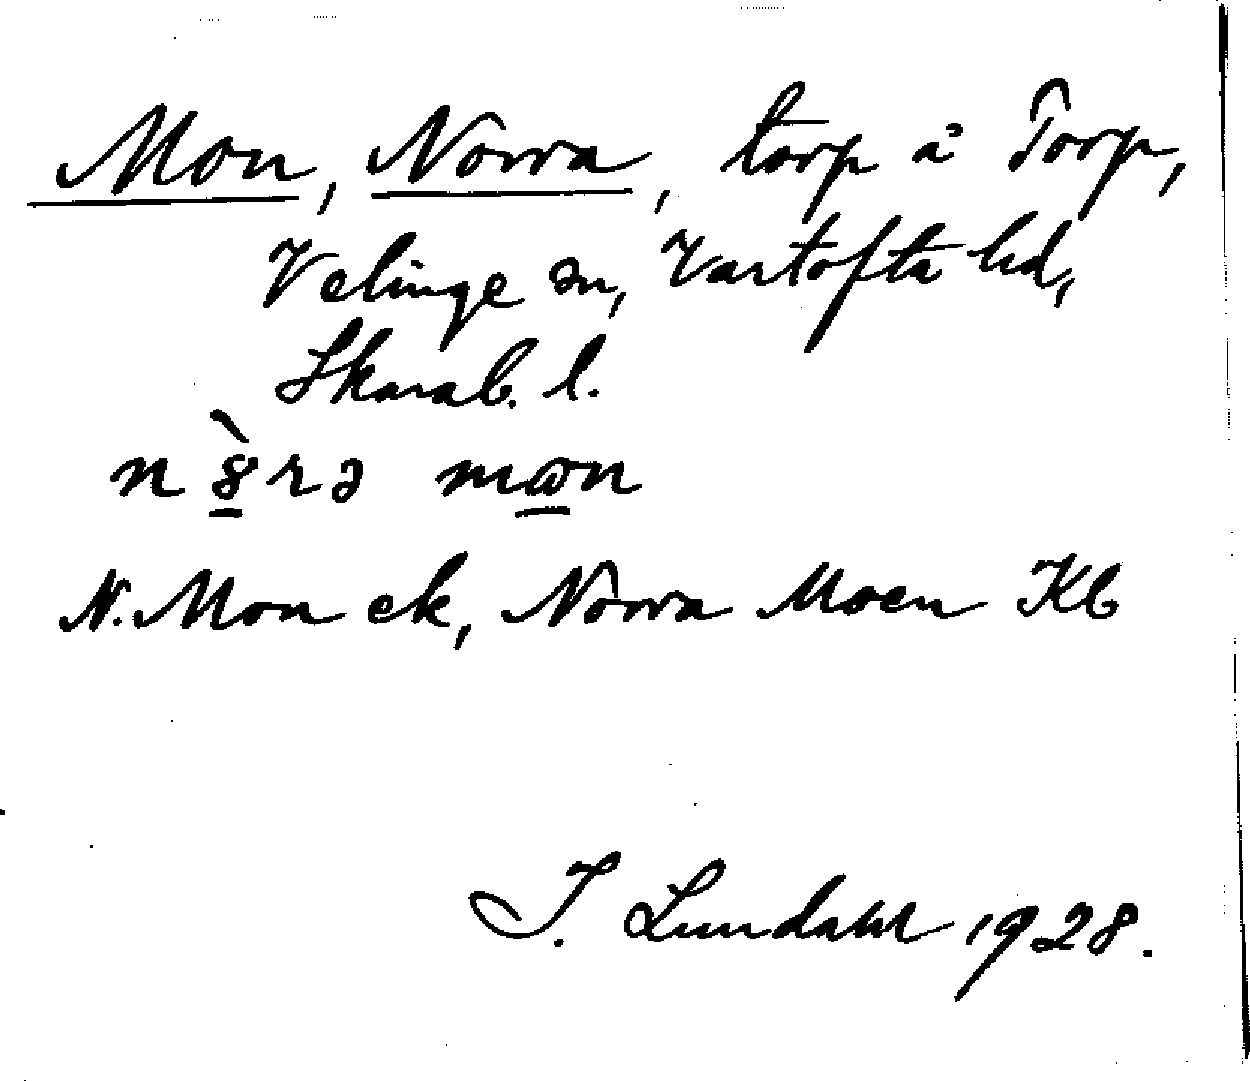 Mon, Norra, torp å Torp,
Velinge sn, Vartofta hd,
Skarab. l.
n rə mon
N. Mon ek, Norra Moen Kb
I. Lundahl 1928.